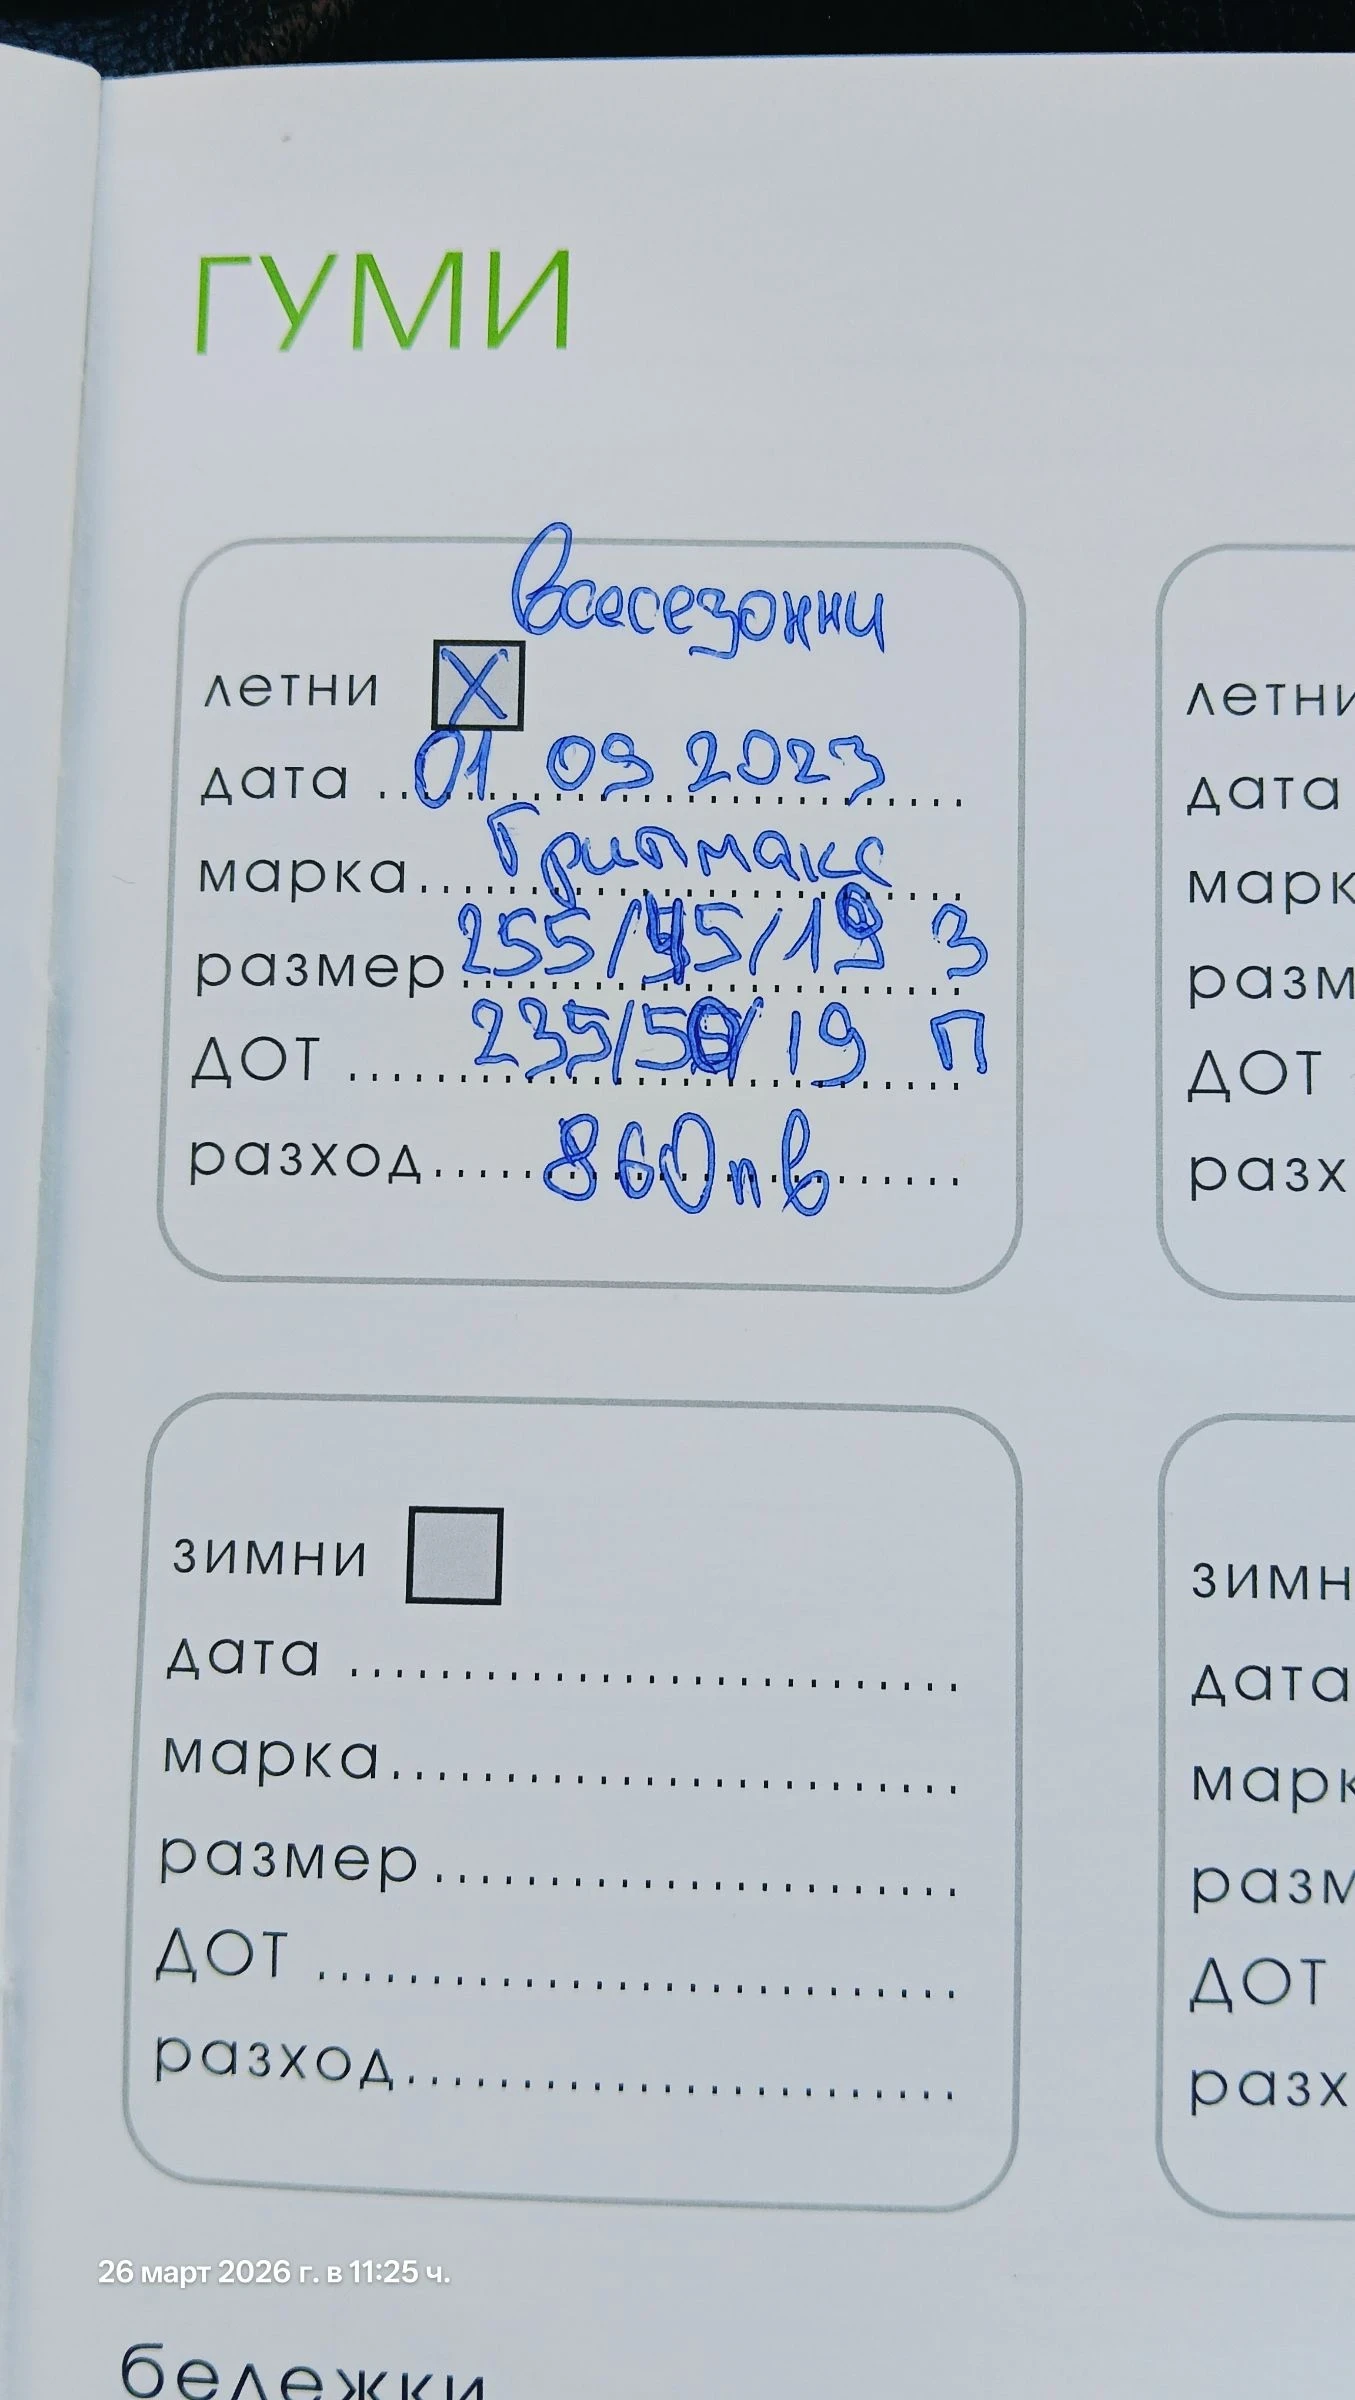 ГУМИ
всесезонни
летни X
дата 01 09 2023
марка Грипмакс
размер 255/45/19 З
ДОТ 235/50/19 П
разход 860лв
зимни
дата
марка
размер
ДОТ
разход
летни
дата
марк
разм
ДОТ
разх
зимн
дата
марк
разм
ДОТ
разх
26 март 2026 г. в 11:25 ч.
бележки